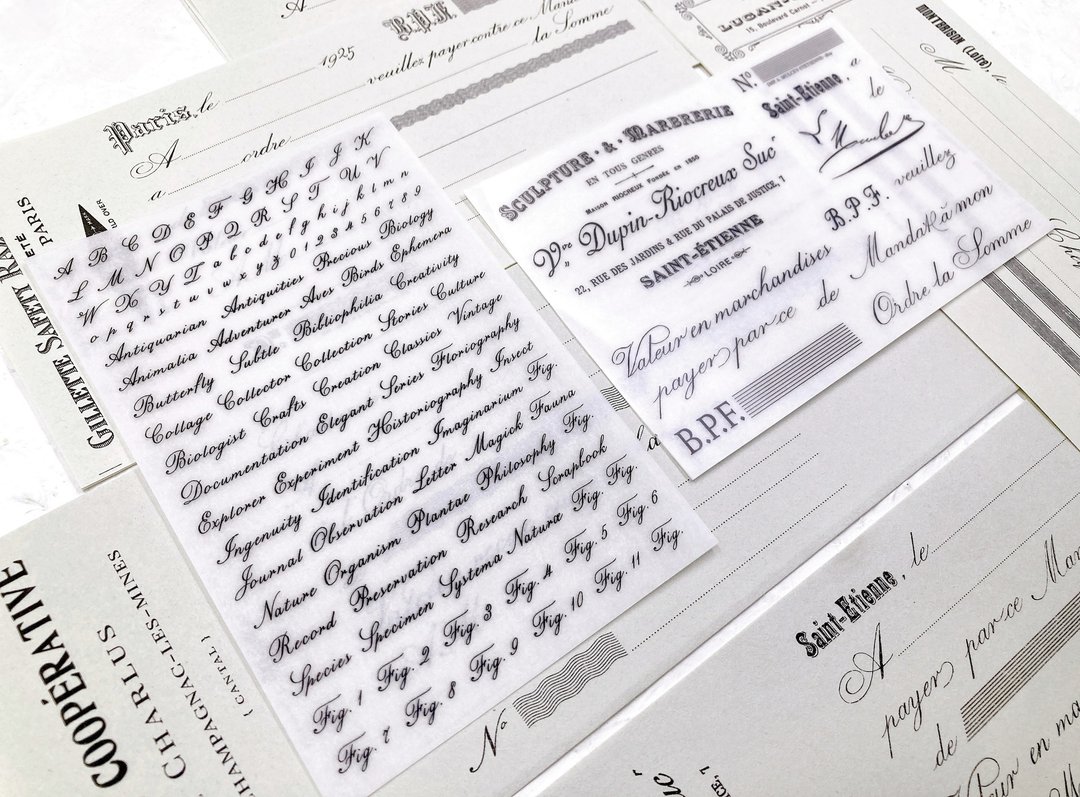 A
B.P.F.
veuillez payer contre ce
la Somme
1925
Paris, le
A
ordre
a
LD OVER
ETE
PARIS
GILLETTE SAFETY RAZ
15, Boulevard Carnot
MONTBRISON (Loire), le
M
A B C D E F G H I J K
L M N O P Q R S T U V
W X Y Z a b c d e f g h i j k l m n
o p q r s t u v w x y z 0 1 2 3 4 5 6 7 8 9
Antiquarian Antiquities Precious Biology
Animalia Adventurer Aves Birds Ephemera
Butterfly Subtle Bibliophilia Creativity
Collage Collector Collection Stories Culture
Biologist Crafts Creation Classics Vintage
Documentation Elegant Series Floriography
Explorer Experiment Historiography Insect
Ingenuity Identification Imaginarium Fig.
Journal Observation Letter Magick Fauna
Nature Organism Plantae Philosophy Fig
Record Preservation Research Scrapbook
Species Specimen Systema Naturæ Fig. Fig.
Fig. 1 Fig. 2 Fig. 3 Fig. 4 Fig. 5 Fig. 6
Fig. 7 Fig. 8 Fig. 9 Fig. 10 Fig. 11 Fig.
SCULPTURE · & · MARBRERIE
EN TOUS GENRES
MAISON RIOCREUX FONDÉE EN 1850
Vve Dupin-Riocreux Suc
22, RUE DES JARDINS & RUE DU PALAIS DE JUSTICE, 7
SAINT-ÉTIENNE
LOIRE
No.
Saint-Etienne, a
le
B.P.F. veuillez
Valeur en marchandises
MandaR à mon
payer par ce de
Ordre la Somme
B.P.F.
COOPÉRATIVE
CHARLUS
CHAMPAGNAC-LES-MINES
(CANTAL)
No
Saint-Etienne, le
A
payer par ce
de
Valeur en